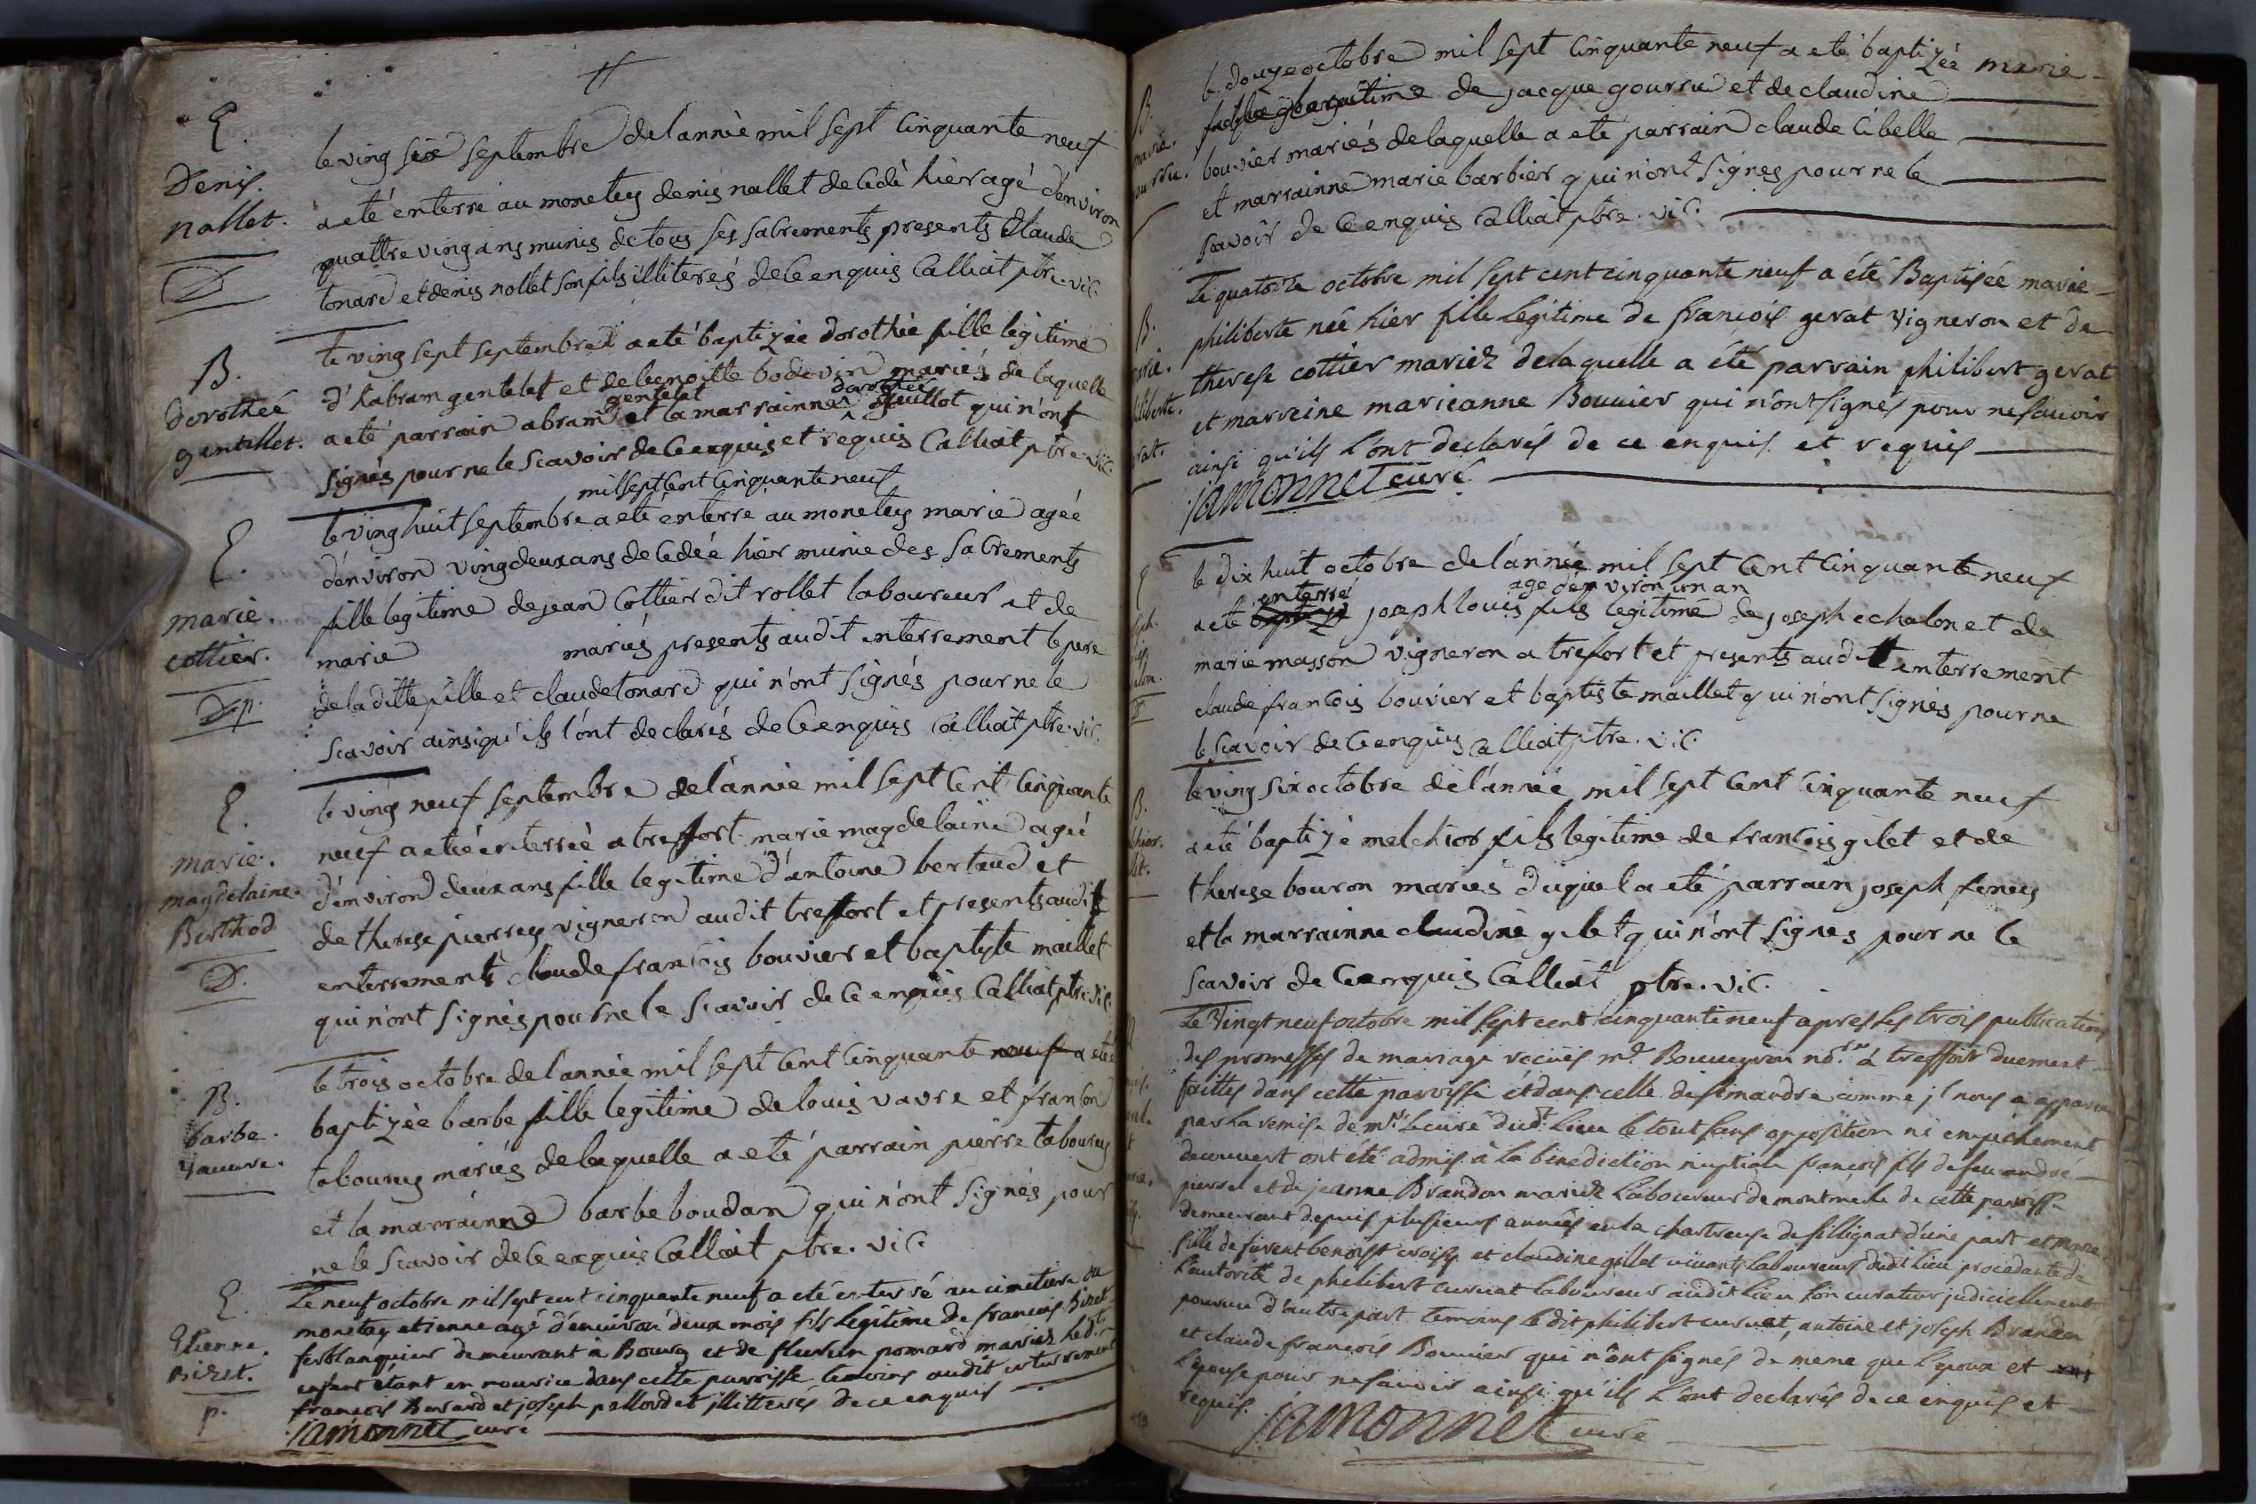 E.
Denis.
nallet.
D
le ving six septembre de l'année mil sept cinquante neuf
a eté enterré au monetey denis nallet decedé hier agé d'environ
quattre ving ans munis de tous ses sacrements presents Claude
tonard et denis nollet son fils illiterés de ce enquis Calliat ptre. vic.
B.
dorotheé
gentillet.
le ving sept septembre a eté baptizée dorothée fille legitime
d'habram gentelet et de benoitte bodevin mariés de laquelle
gentelet dorothée
a eté parrain abram et la marrainne guillot qui n'ont
signés pour ne le scavoir de ce enquis et requis Calliat ptre. vic.
mil sept cent cinquante neuf
E.
marie.
cottier.
D. p.
le ving huit septembre a eté enterré au monetey marie ageé
d'environ ving deux ans decedeé hier munie des sacrements
fille legitime de jean Cottier dit rollet laboureur et de
marie mariés presents au dit enterrement le pere
de la ditte fille et claude tonard qui n'ont signés pour ne le
scavoir ainsi qu'ils l'ont declarés de ce enquis Calliat ptre. vic.
E.
marie.
magdelaine.
Berthod
D.
le ving neuf septembre de l'année mil sept cent cinquante
neuf a eté enterreé a treffort marie magdelaine ageé
d'environ deux ans fille legitime d'antoine bertaud et
de therese pierrey vigneron au dit treffort et presents au dit
enterrements claude francois bouvier et baptiste maillet
qui n'ont signés pour ne le scavoir de ce enquis Calliat ptre. vic.
B.
barbe.
vauvre.
le trois octobre de l'année mil sept cent cinquante neuf a eté
baptizée barbe fille legitime de louis vavre et franson
tabourey mariés de laquelle a eté parrain pierre tabourey
et la marrainne barbe boudan qui n'ont signés pour
ne le scavoir de ce enquis Calliat ptre. vic.
E.
Etienne.
Bizet.
p.
Le neuf octobre mil sept cent cinquante neuf a eté enterré au cimetiere du
monetay etienne agé d'environ deux mois fils légitime de francois Bizet
ferblanquier demeurant à Bourg et de fleurin pomard mariez ledt.
enfant étant en nourice dans cette parroisse temoins audit enterrement
francois Benard et joseph pallordet illitterés de ce enquis
jamonnet curé
B.
marie.
le douze octobre mil sept cinquante neuf a eté baptizée marie
fille legitime de jacque goursu et de claudine
bouvier mariés de laquelle a eté parrain claude Cibelle
et marrainne marie barbier qui n'ont signés pour ne le
scavoir de ce enquis Calliat ptre. vic.
B.
Le quatorze octobre mil sept cent cinquante neuf a été Baptisée marie
philiberte née hier fille Legitime de francois gerat vigneron et de
therese cottier mariez de laquelle a été parrain philibert gerat
et marreine marieanne Bouvier qui n'ont signés pour ne savoir
ainsi qu'ils l'ont declarés de ce enquis et requis
jamonnet curé
le dix huit octobre de l'année mil sept cent cinquante neuf
enterré agé d'environ un an
a eté joseph louis fils legitime de joseph echalon et de
marie masson vigneron a trefort et presents au dit enterrement
claude francois bouvier et baptiste maillet qui n'ont signés pour ne
le scavoir de ce enquis Calliat ptre. vic.
B.
le ving six octobre de l'année mil sept cent cinquante neuf
a eté baptizé melchior fils legitime de francois gilet et de
therese bouron mariés duquel a eté parrain joseph ferrey
et la marrainne claudine gilet qui n'ont signés pour ne le
scavoir de ce enquis Calliat ptre. vic.
Le Vingt neuf octobre mil sept cent cinquante neuf apres les trois publications
des promesses de mariage recuës me. nore. à treffort duement
faittes dans cette parroisse et dans celle de simandre comme jl nous a apparu
par la remise de mr. le curé dudt. Lieu le tout sans opposition ni empéchement
decouvert ont été admis à la benediction nuptiale francois fils de feu andré
perret et de jeanne Brandon mariéz Laboureurs de montmerle de cette parroisse
demeurant depuis plusieurs années en la chartreuse de sillignat d'une part et marie
fille de furent benoist croisy et claudine gillet vivants Laboureurs dudit Lieu procedante de
l'autorité de philibert curnat laboureur audit Lieu son curateur judiciellement
pourvu d'autre part temoins le dit philibert curnat, antoine et joseph Brandon
et claude francois Bouvier qui n'ont signés de meme que l'epoux et
l'epouse pour ne savoir ainsi qu'ils l'ont declarés de ce enquis et
requis. jamonnet curé